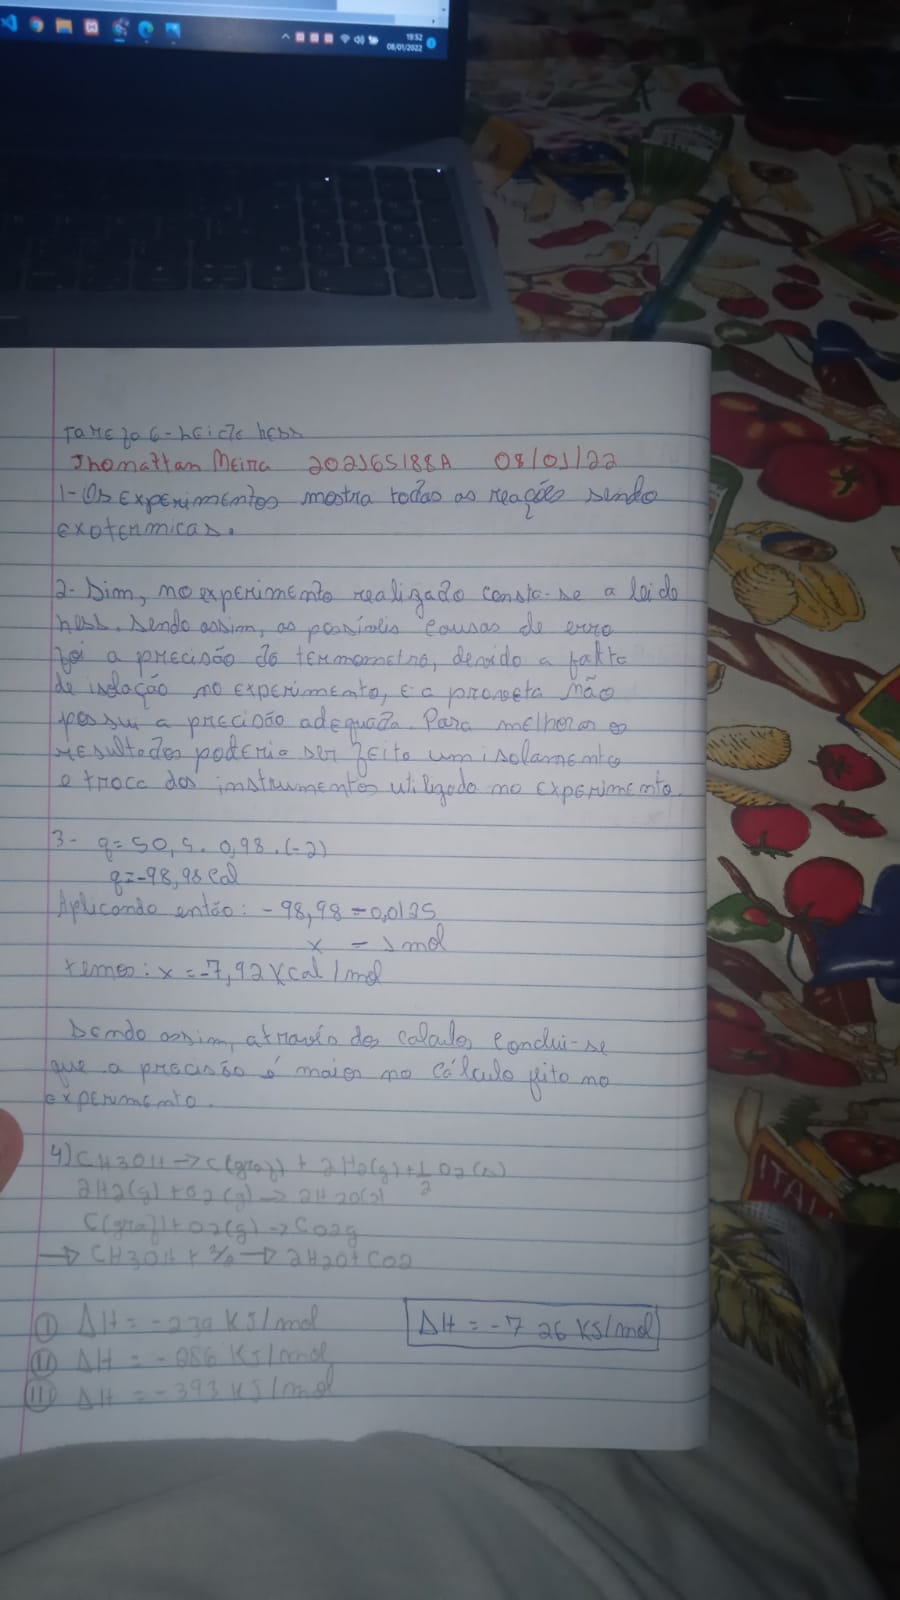 19:52
08/01/2022
Tarefa 6 - Lei de Hess
Jhonattan Meira 202165188A 08/01/22
1- Os Experimentos mostra todas as reações sendo
exotermicas.
2- Sim, no experimento realizado consta-se a lei de
hess. Sendo assim, as possíveis causas de erro
foi a precisão do termometro, devido a falta
de isolação no experimento, e a proveta não
possui a precisão adequada. Para melhorar os
resultados poderia ser feito um isolamento
e troca dos instrumentos utilizado no experimento.
3- q= 50,5. 0,98 .(-2)
q=-98,98 cal
Aplicando então: -98,98 = 0,0125
x - 1 mol
temos: x = -7,92 Kcal/mol
Sendo assim, através dos calculos conclui-se
que a precisão é maior no cálculo feito no
experimento.
4) CH3OH → C(graf) + 2H2(g) + 1/2 O2(g)
2H2(g) + O2(g) → 2H2O(l)
C(graf) + O2(g) → CO2g
→ CH3OH + 3/2 → 2H2O + CO2
I ΔH = -239 KJ/mol
ΔH = -7 26 KJ/mol
II ΔH = -286 KJ/mol
III ΔH = -393 KJ/mol
ITAL